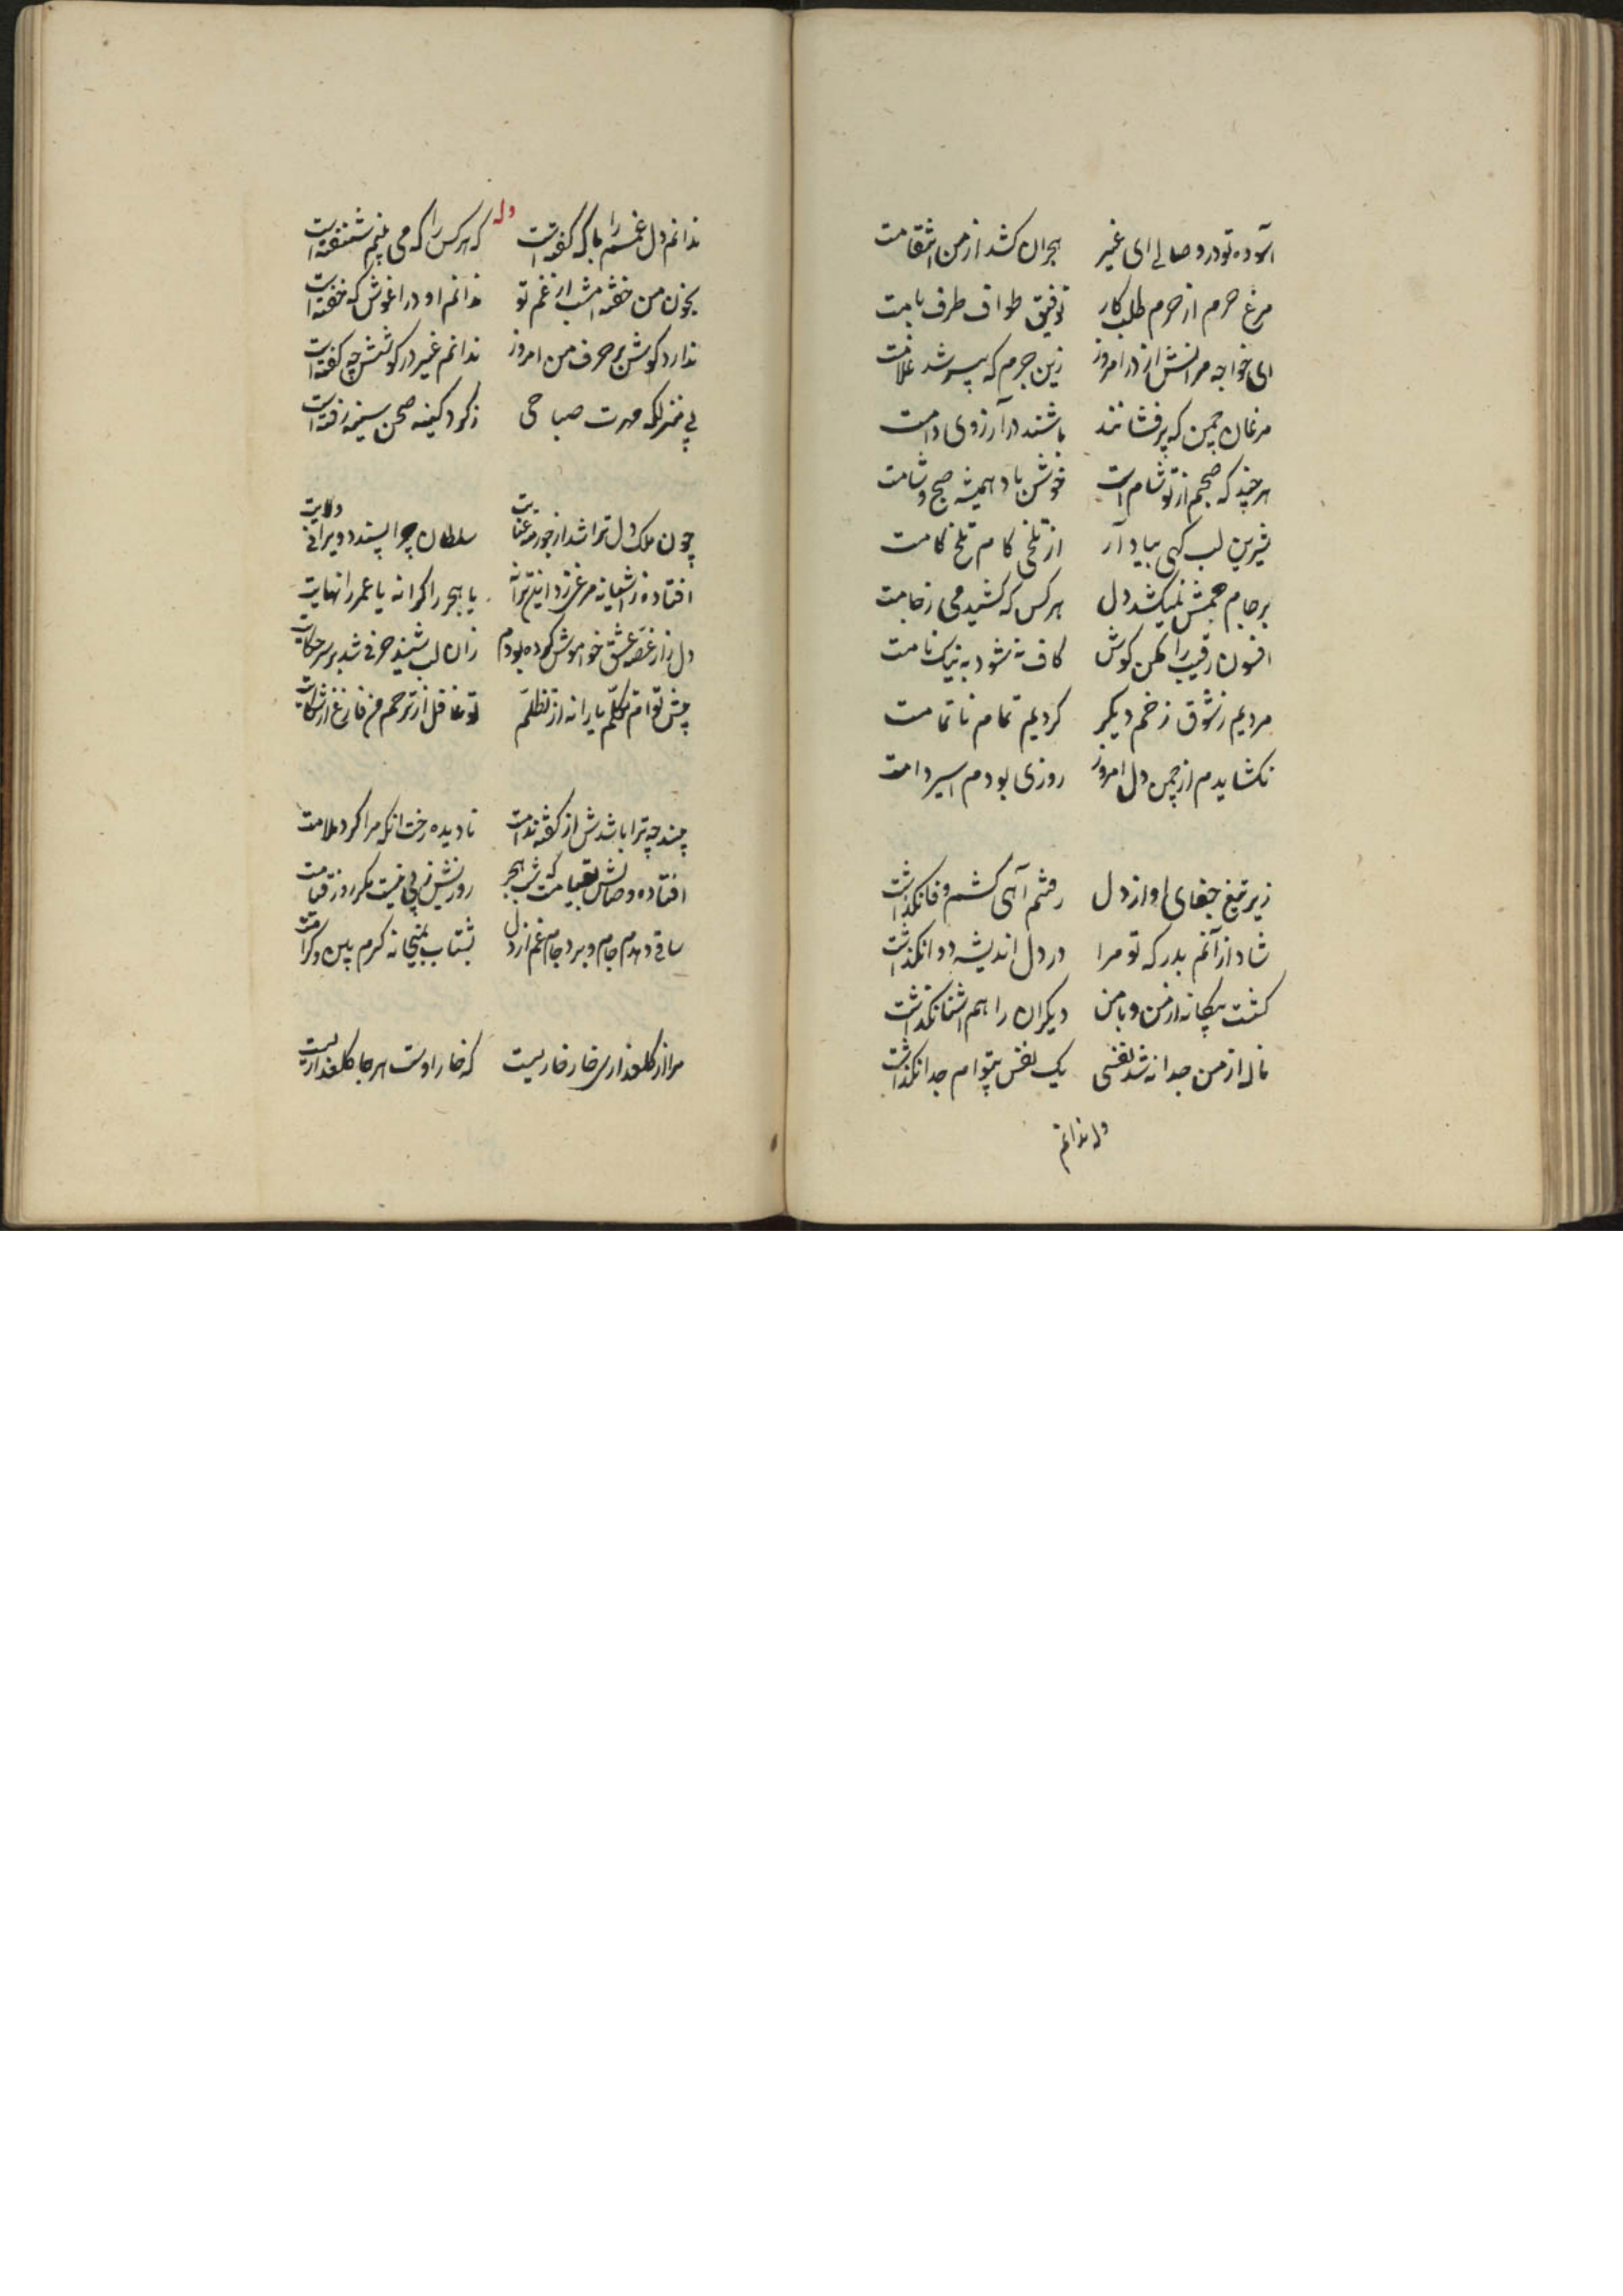 آسوده تو در وصالی ای غیر هجران کشد از من انتقامت
مرغ حرم از حرم طلب کار توفیق طواف طرف بامت
ای خواجه مرانش از در امروز زین جرم که پیر شد غلامت
مرغان چمن که پرفشانند باشند در آرزوی دامت
هر چند که صبحم از تو شام است خوش باد همیشه صبح و شامت
شیرین لب کهی بیاد آر از تلخی کام تلخ کامت
بر جام جمش نمیکشد دل هر کس که کشید می ز جامت
افسون رقیب را مکن کوش کافسانه شود به نیک نامت
مردیم ز شوق زخم دیکر کردیم تمام ناتمامت
نکشایدم از چمن دل امروز روزی بودم اسیر دامت
زیر تیغ جفای او از دل رفتم آهی کشم وفا نکذاشت
شاد از آنم بدرد که تو مرا در دل اندیشه دوا نکذاشت
کشت بیکانه از من و با من دیکران را هم اشنا نکذاشت
ناله از من جدا نشد نفسی یک نفس بیتوام جدا نکذاشت
وله ندانم
وله
ندانم دل غمم را با که کفته است که هر کس را که می بینم شنفته است
بخون من خفته امشب از غم تو ندانم او در اغوش که خفته است
ندارد کوش بر حرف من امروز ندانم غیر در کوشش چه کفته است
پی منزلکه مهرت صباحی ز کرد کینه صحن سینه رفته است
چون ملک دل ترا شد از جور مه عنایت سلطان چرا پسندد ویرانی ولایت
افتاده ز اشیانه مرغی زد این ترانه یا هجر را کرانه یا عمر را نهایت
دل را ز غصه عشق خواموش کرده بودم زان لب شنید حرفی شد بر سر حکایت
پیش تو ام تکلم یارا نه از تظلم تو غافل از ترحم من فارغ از شکایت
چند چه ترا باشدش از کفته ندامت نادیده رخت انکه مرا کرد ملامت
افتاده وصالش بقیامت که شب هجر روزیش ز پی نیست مکر روز قیامت
ساقی دهدم جام و برد جام غم از دل بشتاب بمیخانه کرم بین و کرامت
مرا از کلعذاری خار خاریست که خار اوست هر جا کلعذاریست